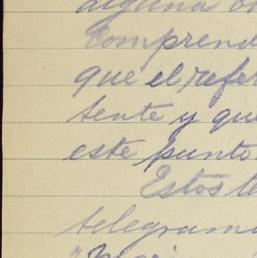 alguna
Comprend
que el refer
tente y que
este punto
Estos te
telegrama